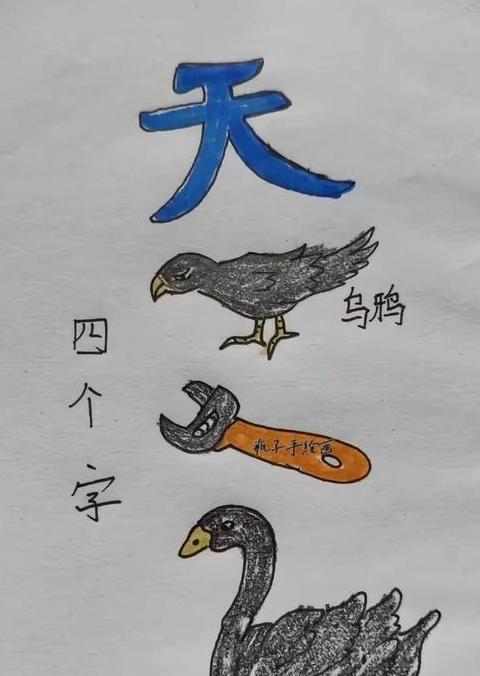 天
乌鸦
四个字
瓶子手绘画